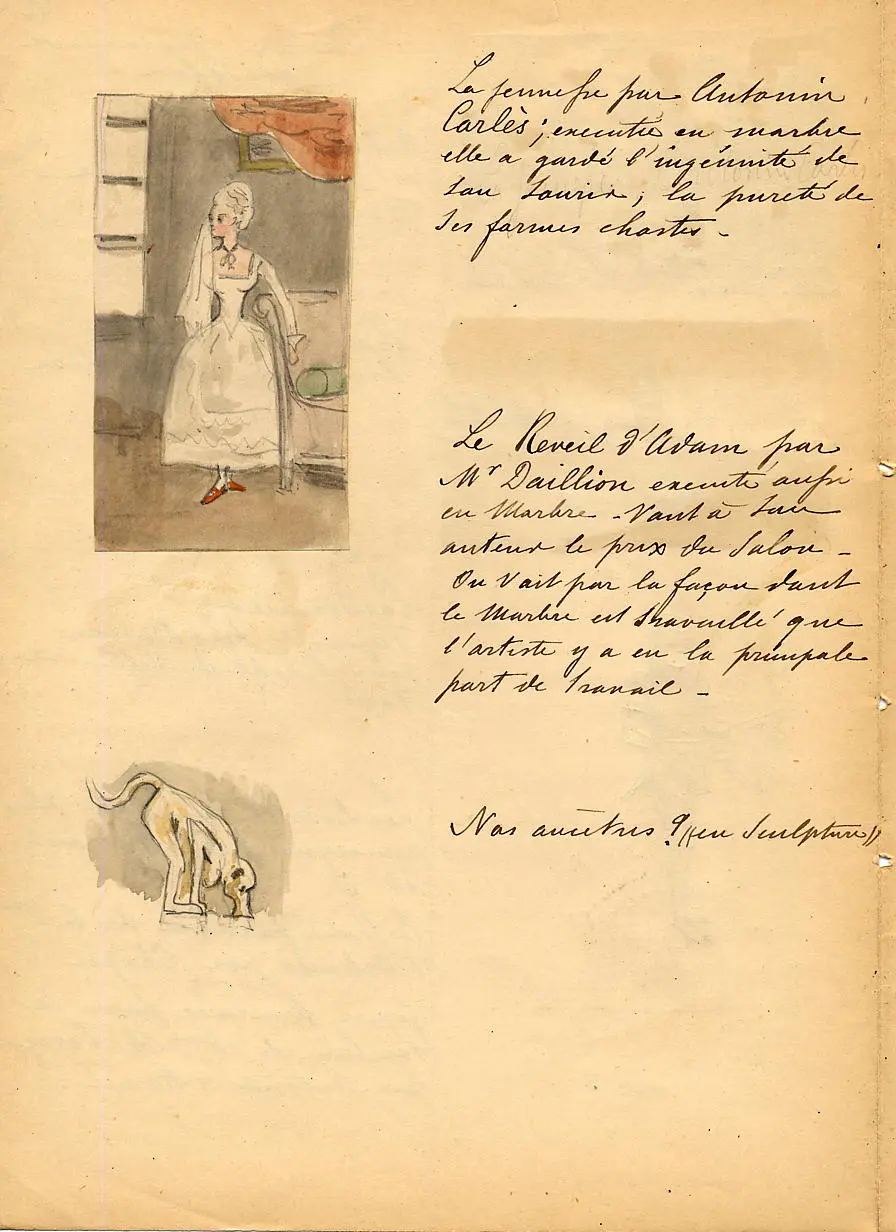 La jeunesse par Antonin
Carlès ; executée en marbre
elle a gardé l'ingénuité de
son sourir ; la pureté de
ses formes chastes -
Le Reveil d'Adam par
Mr Daillion executé aussi
en Marbre - Vaut à son
auteur le prix du Salon -
On voit par la façon dont
le Marbre est travaillé que
l'artiste y a eu la principale
part de travail -
Nos ancêtres ? (en Sculpture)